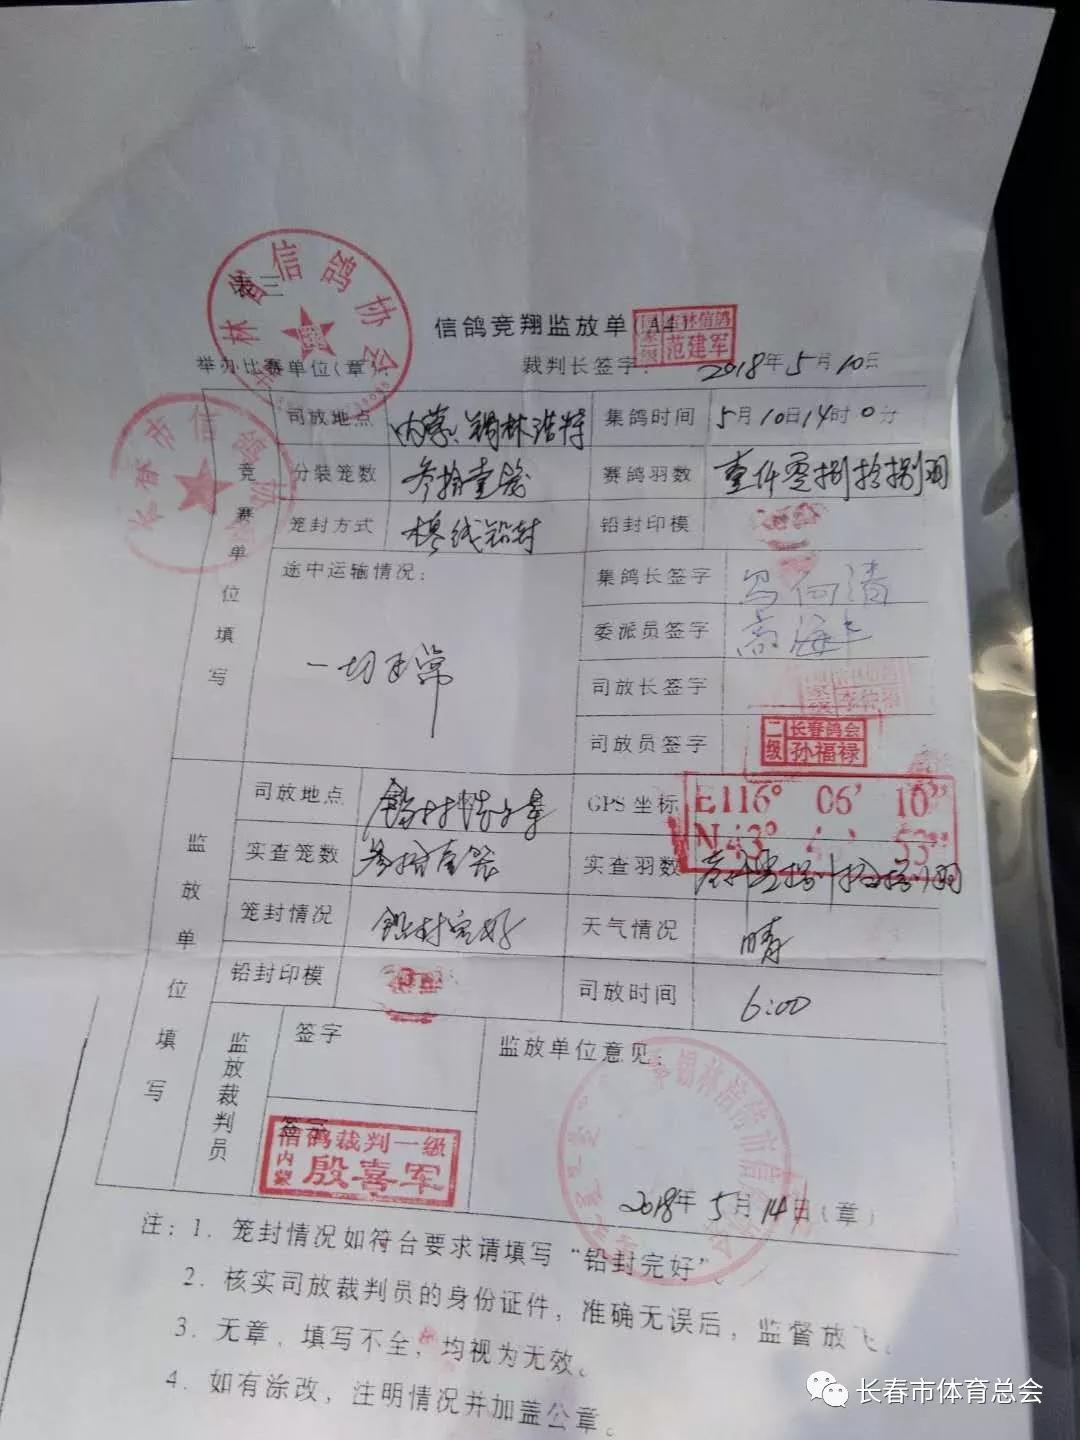 表三
吉林省信鸽协会
信鸽竞翔监放单(A4)
国家级 吉林信鸽 范建军
举办比赛单位(章): 裁判长签字: 2018年5月10日
长春市信鸽协会
竞赛单位填写
司放地点 内蒙锡林浩特 集鸽时间 5月10日14时0分
分装笼数 叁拾壹笼 赛鸽羽数 壹仟零捌拾捌羽
笼封方式 棉线铅封 铅封印模
途中运输情况: 集鸽长签字
一切正常 委派员签字
司放长签字
司放员签字 二级 长春鸽会 孙福禄
监放单位填写
司放地点 GPS坐标 E116° 06' 10"
N43° 53"
实查笼数 叁拾壹笼 实查羽数 壹仟零捌拾捌羽
笼封情况 铅封完好 天气情况 晴
铅封印模 司放时间 6:00
监放裁判员
签字 监放单位意见:
签字
信鸽裁判一级
内蒙 殷喜军
2018年5月14日(章)
注:1. 笼封情况如符合要求请填写“铅封完好”。
2. 核实司放裁判员的身份证件，准确无误后，监督放飞。
3. 无章、填写不全，均视为无效。
4. 如有涂改，注明情况并加盖公章。
长春市体育总会